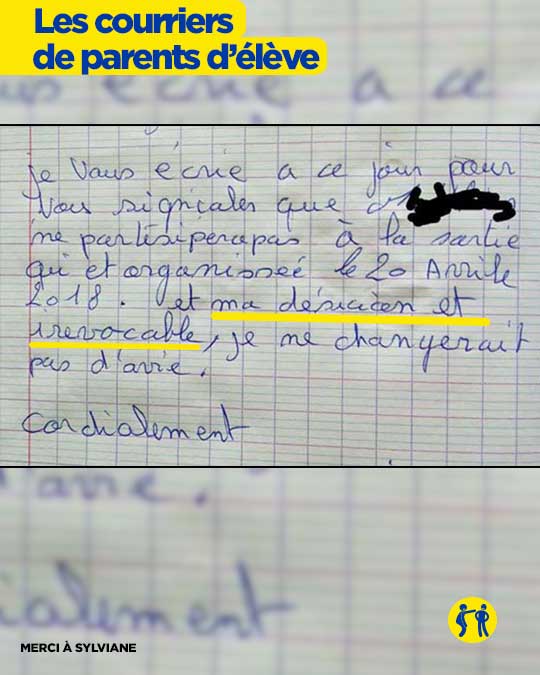 Les courriers
de parents d'élève
je Vous écrie a ce jour pour
Vous signicaler que
ne partisiperapas à la sortie
qui et organisseé le 20 Avrile
2018. et ma désicien et
irevocable, je ne changerait
pas d'avie.
Cordialement
MERCI À SYLVIANE